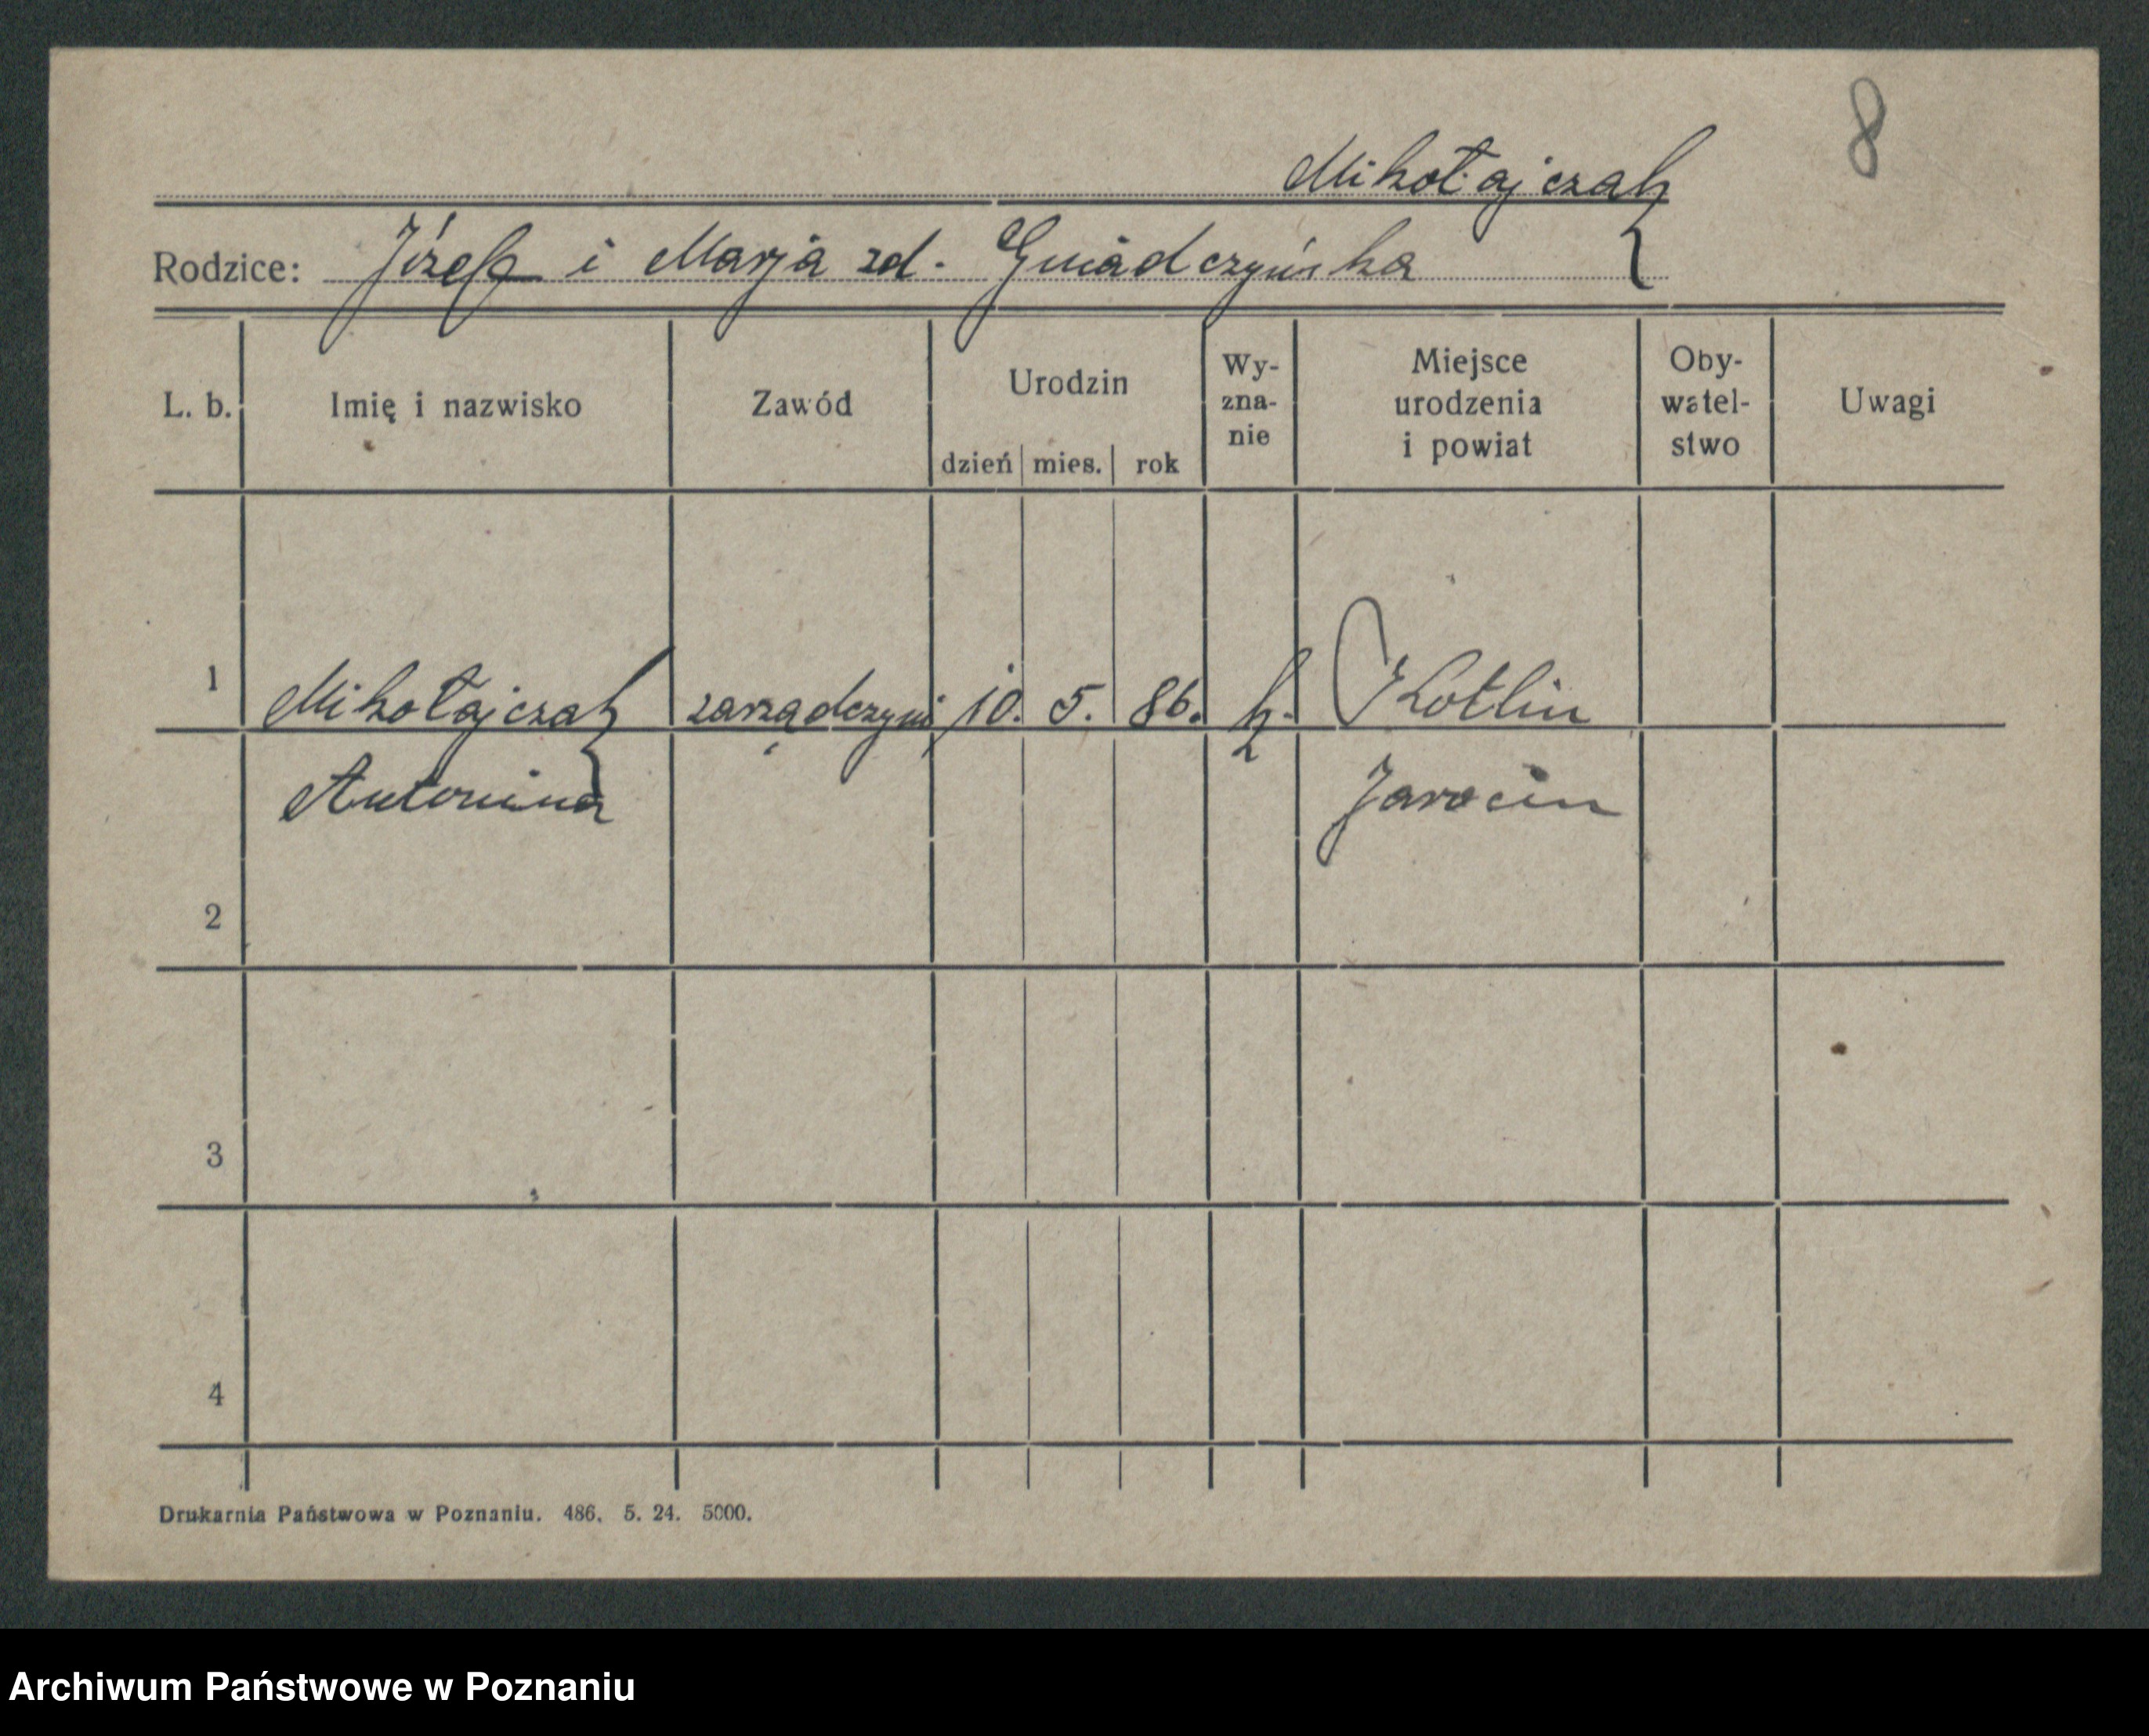 8
Mikołajczak
Rodzice: Józef i Marja zd. Gniadczyńska
L. b. Imię i nazwisko Zawód Urodzin dzień mies. rok Wy-zna-nie Miejsce urodzenia i powiat Oby-watel-stwo Uwagi
1 Mikołajczak zarządczyni 10. 5. 86. k. Kotlin
Antonina Jarocin
2
3
4
Drukarnia Państwowa w Poznaniu. 486. 5. 24. 5000.
Archiwum Państwowe w Poznaniu